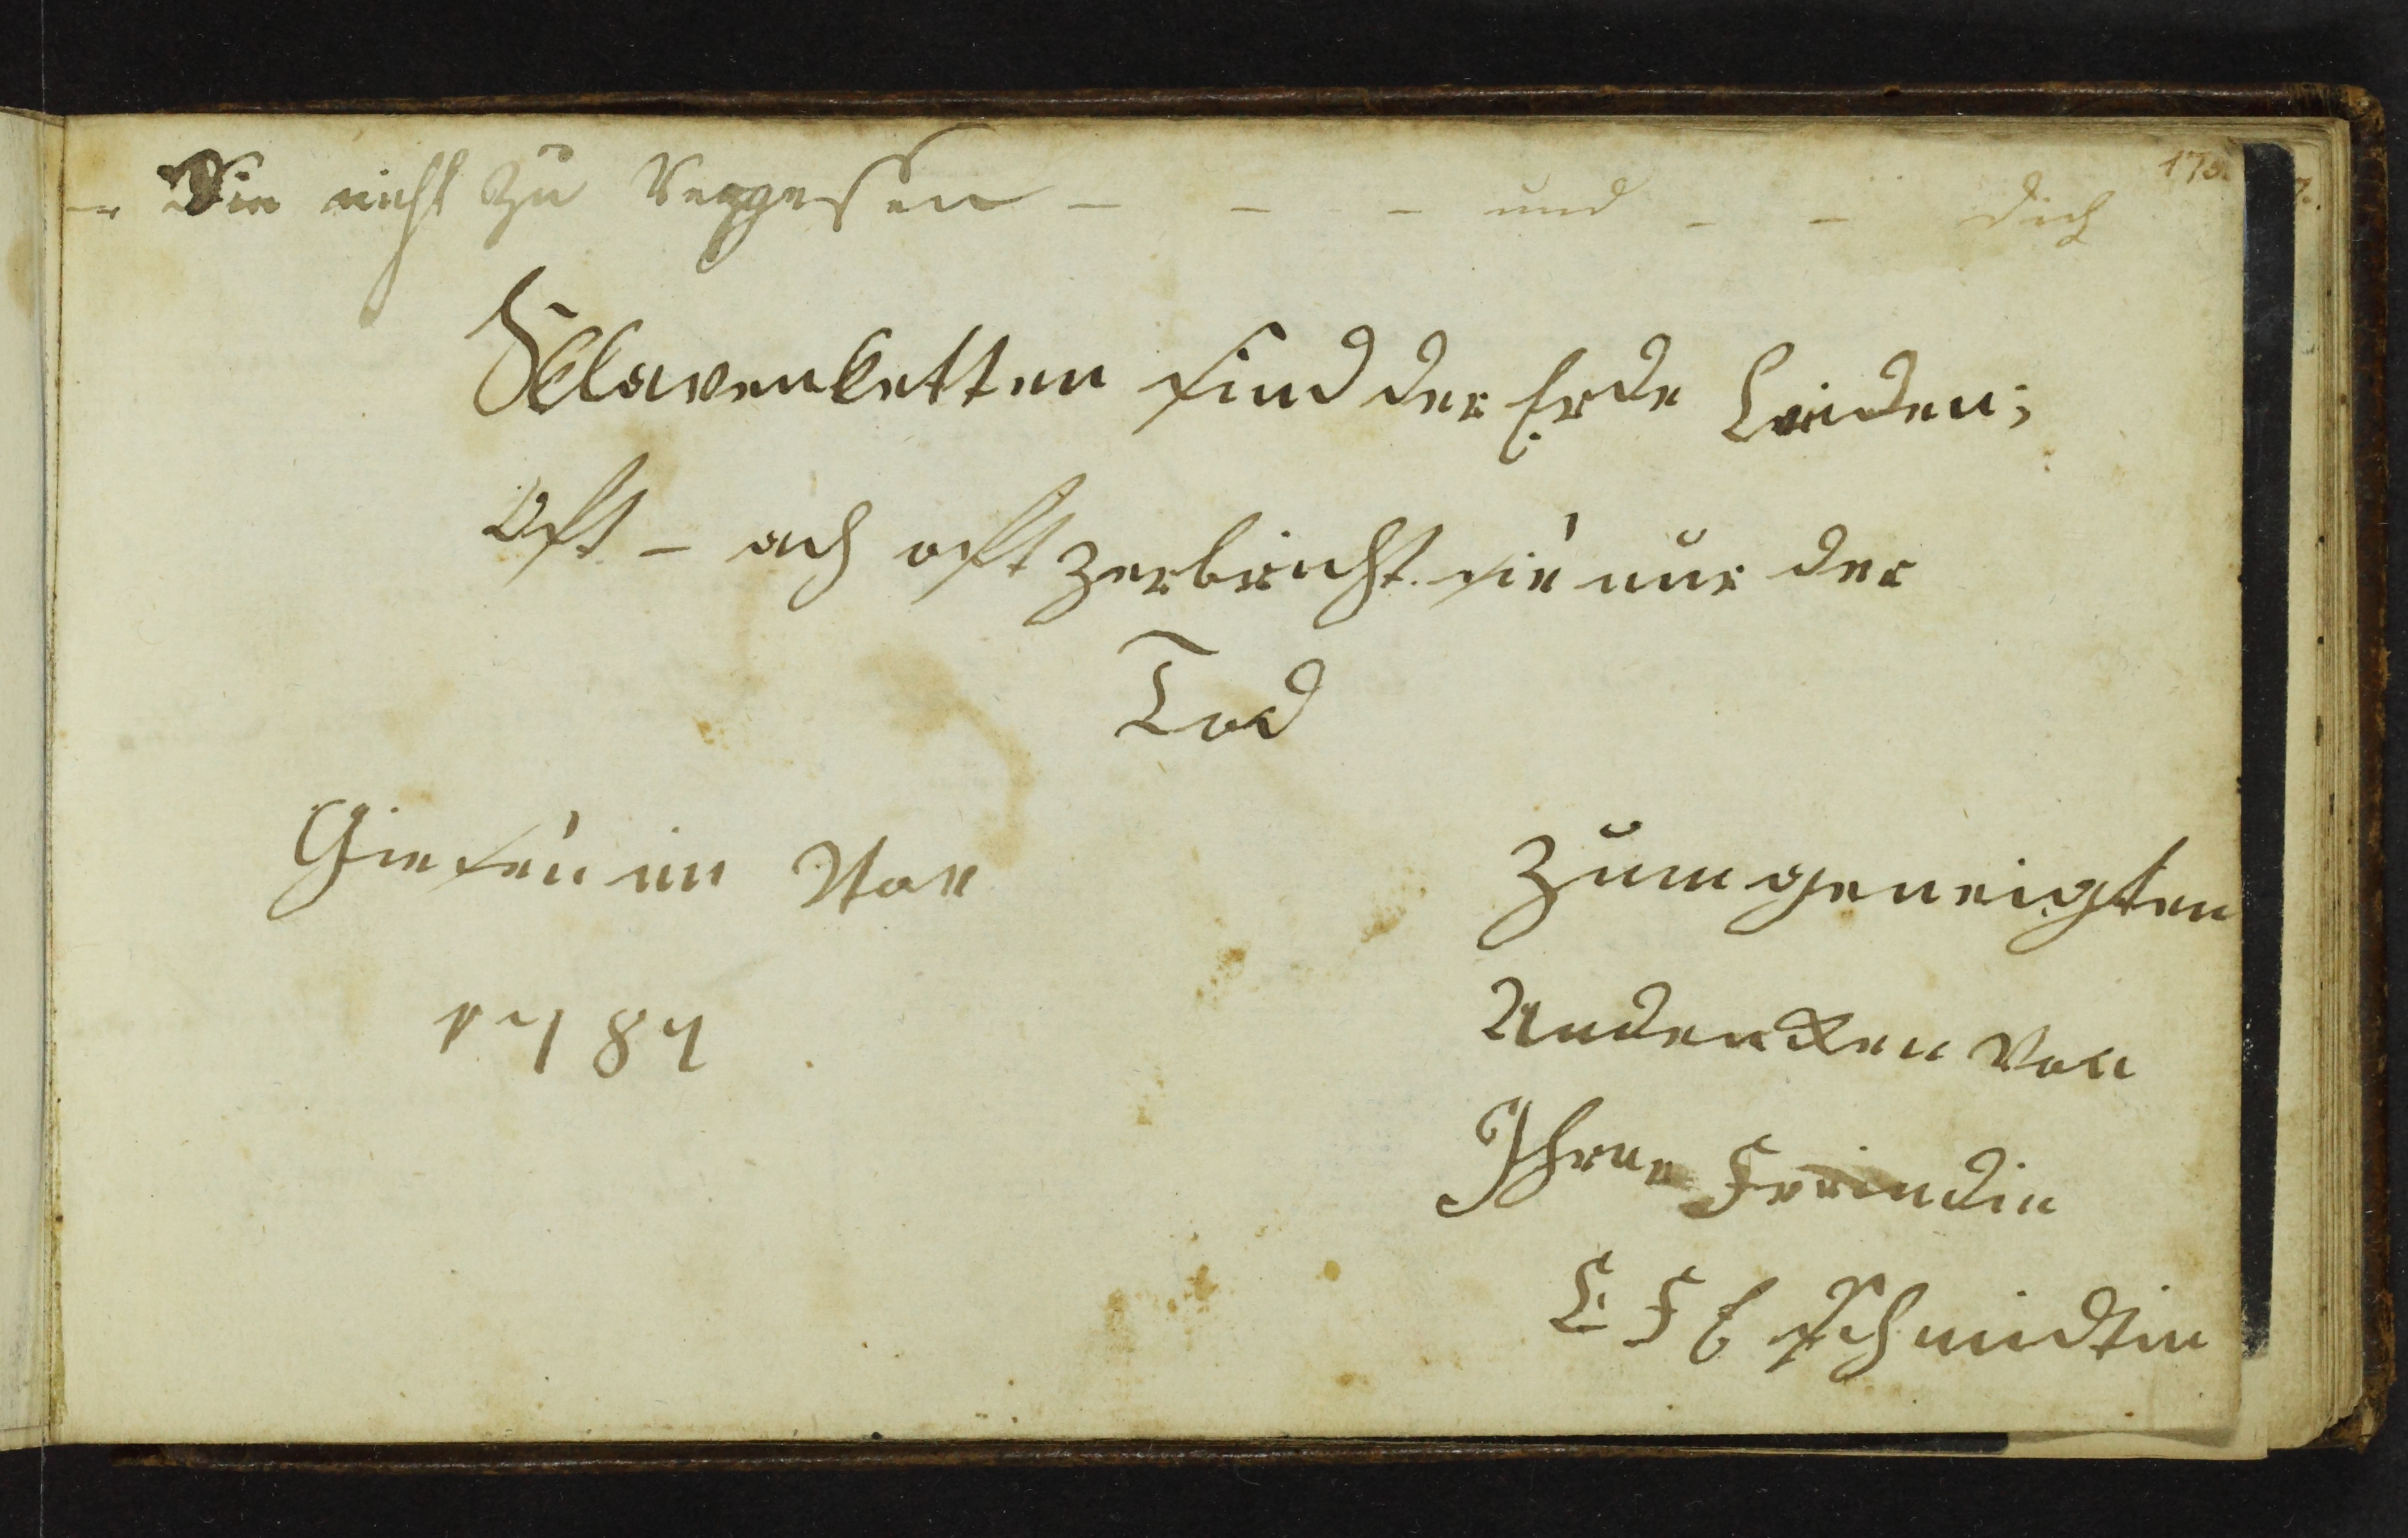 173.
– Die nicht zu Vergessen – – – und – – dich
Sklavenketten sind der Erde Leiden;
Oft – ach oft zerbricht sie nur der
Tod
Giesen im Nov
1787
Zum geneigten
Andencken von
Ihrer Freundin
C F E Schmidtin